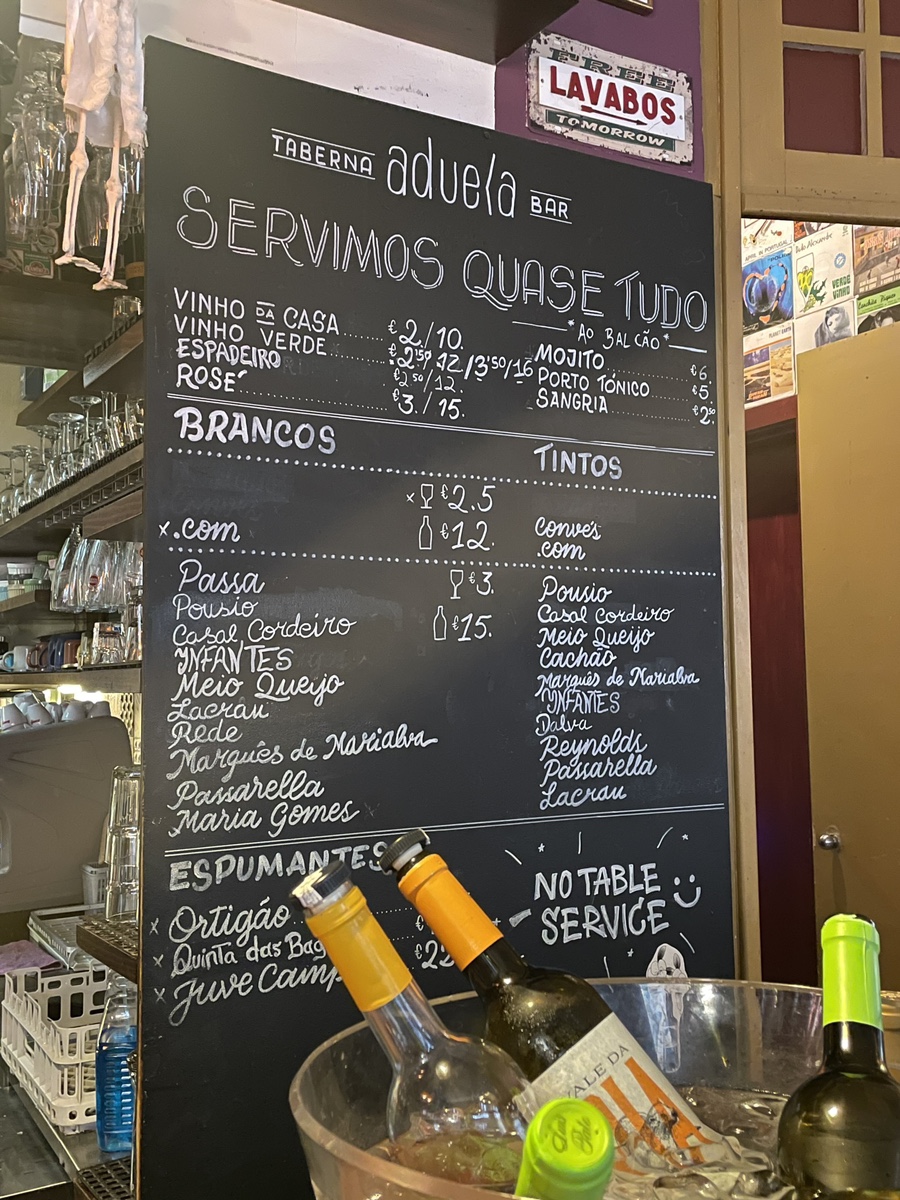 FREE
LAVABOS
TOMORROW
TABERNA aduela BAR
SERVIMOS QUASE TUDO
*AO BALCÃO*
VINHO DA CASA €2./10.
VINHO VERDE €2'50 12/3'50/16
ESPADEIRO €2'50/12.
ROSÉ €3./15.
MOJITO €6
PORTO TÓNICO €5
SANGRIA €2'50
BRANCOS
TINTOS
x €2.5
x.com €12.
convés
.com
Passa €3.
Pousio
Casal Cordeiro €15.
INFANTES
Meio Queijo
Lacrau
Rede
Marquês de Marialva
Passarella
Maria Gomes x
Pousio
Casal Cordeiro
Meio Queijo
Cachão
Marquês de Marialva
INFANTES
Dalva
Reynolds
Passarella
Lacrau
ESPUMANTES
x Ortigão
x Quinta das
x Juve
NO TABLE
SERVICE
VALE DA
APRIL IN PORTUGAL
VERDE
VINHO